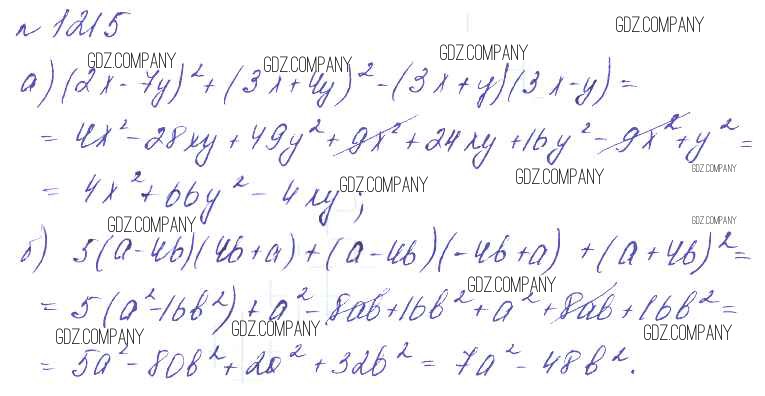 № 1215
GDZ.COMPANY
GDZ.COMPANY GDZ.COMPANY GDZ.COMPANY
а) (2x - 7y)² + (3x + 4y)² - (3x + y)(3x - y) =
= 4x² - 28xy + 49y² + 9x² + 24xy + 16y² - 9x² + y² =
GDZ.COMPANY GDZ.COMPANY GDZ.COMPANY
= 4x² + 66y² - 4xy;
GDZ.COMPANY GDZ.COMPANY
б) 5(a - 4b)(4b + a) + (a - 4b)(-4b + a) + (a + 4b)² =
GDZ.COMPANY
= 5(a² - 16b²) + a² - 8ab + 16b² + a² + 8ab + 16b² =
GDZ.COMPANY GDZ.COMPANY GDZ.COMPANY
= 5a² - 80b² + 2a² + 32b² = 7a² - 48b².